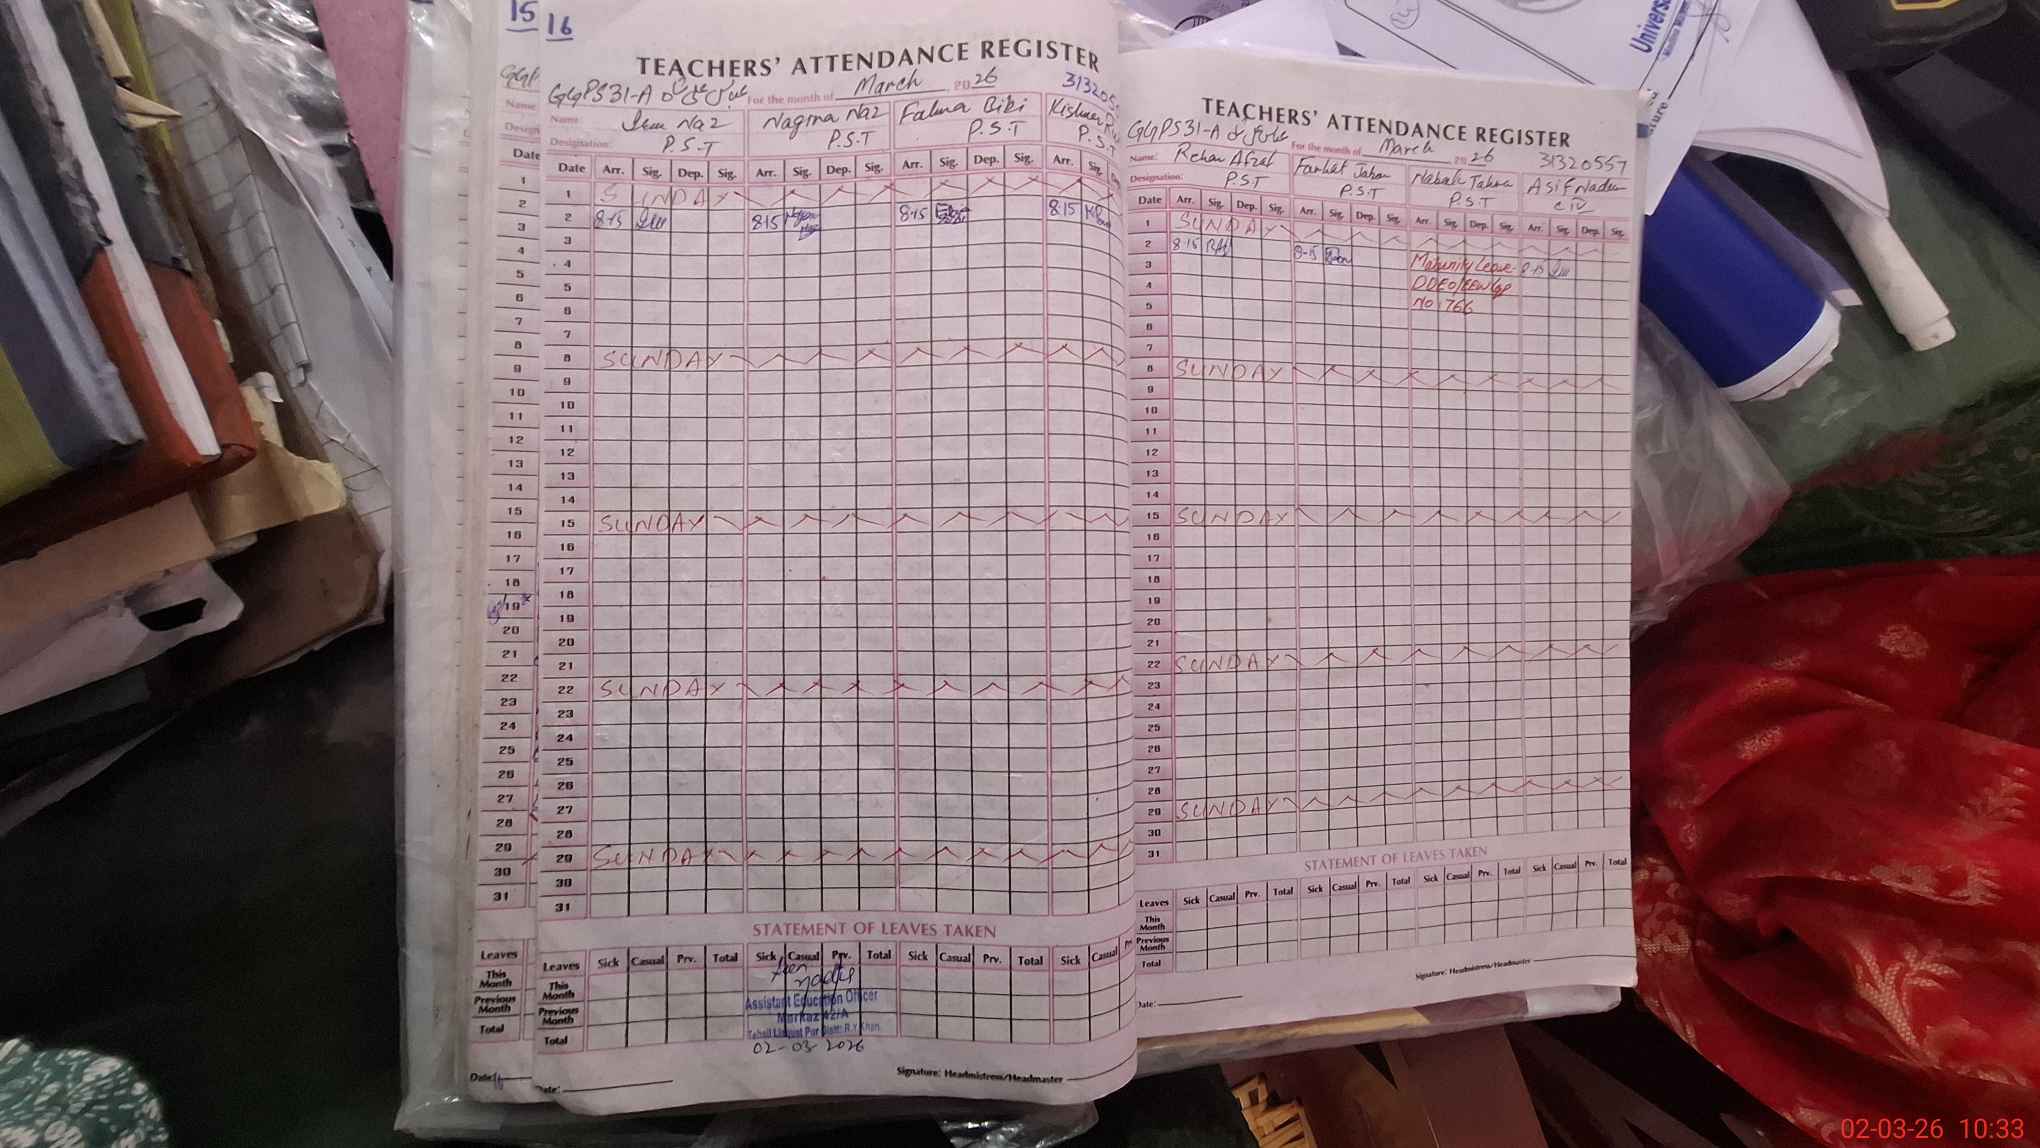 15
16
TEACHERS' ATTENDANCE REGISTER
GGPS 31-A
For the month of March, 2026
Name: Naz Nagina Naz Fatima Bibi
Designation: P.S.T P.S.T P.S.T P.S.T
Date Arr. Sig. Dep. Sig. Arr. Sig. Dep. Sig. Arr. Sig. Dep. Sig. Arr. Sig.
1 SUNDAY
2 8-15 8:15 8-15 8:15
3
4
5
6
7
8 SUNDAY
9
10
11
12
13
14
15 SUNDAY
16
17
18
19
20
21
22 SUNDAY
23
24
25
26
27
28
29 SUNDAY
30
31
STATEMENT OF LEAVES TAKEN
Leaves Sick Casual Prv. Total Sick Casual Prv. Total Sick Casual Prv. Total Sick Casual
This Month
Previous Month
Total
Assistant Education Officer
Markaz 42/A
02-03-2026
Date:
Signature: Headmistress/Headmaster
TEACHERS' ATTENDANCE REGISTER
GGPS 31-A
For the month of March 2026 31320557
Name: Rehan Afzal Farhat Jahan Tahira Asif Nadeem
Designation: P.S.T P.S.T P.S.T C IV
Date Arr. Sig. Dep. Sig. Arr. Sig. Dep. Sig. Arr. Sig. Dep. Sig. Arr. Sig. Dep. Sig.
1 SUNDAY
2 8-15 8-15 Maternity Leave 8-15
3
4 No 766
5
6
7
8 SUNDAY
9
10
11
12
13
14
15 SUNDAY
16
17
18
19
20
21
22 SUNDAY
23
24
25
26
27
28
29 SUNDAY
30
31
STATEMENT OF LEAVES TAKEN
Leaves Sick Casual Prv. Total Sick Casual Prv. Total Sick Casual Prv. Total Sick Casual Prv. Total
This Month
Previous Month
Total
Signature: Headmistress/Headmaster
Date:
02-03-26 10:33